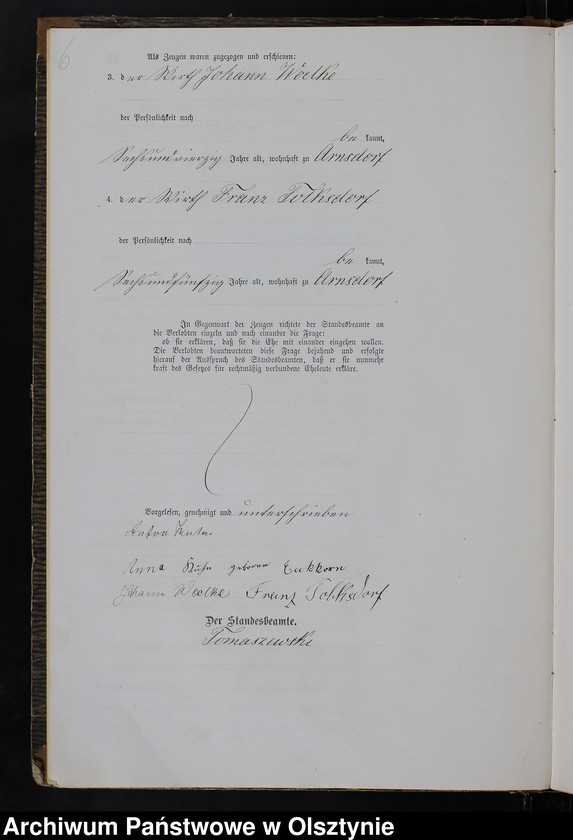 6
Als Zeugen waren zugezogen und erschienen:
3. der Wirth Johann Woelke
der Persönlichkeit nach
be kannt,
Sechsundvierzig Jahre alt, wohnhaft zu Arnsdorf
4. der Wirth Franz Tolksdorf
der Persönlichkeit nach
be kannt,
Sechsundfünfzig Jahre alt, wohnhaft zu Arnsdorf
In Gegenwart der Zeugen richtete der Standesbeamte an
die Verlobten einzeln und nach einander die Frage:
ob sie erklären, daß sie die Ehe mit einander eingehen wollen.
Die Verlobten beantworteten diese Frage bejahend und erfolgte
hierauf der Ausspruch des Standesbeamten, daß er sie nunmehr
kraft des Gesetzes für rechtmäßig verbundene Eheleute erkläre.
Vorgelesen, genehmigt und unterschrieben
Anton
Anna Kuhn geboren
Johann Woelke Franz Tolksdorf
Der Standesbeamte.
Tomaszewski
Archiwum Państwowe w Olsztynie